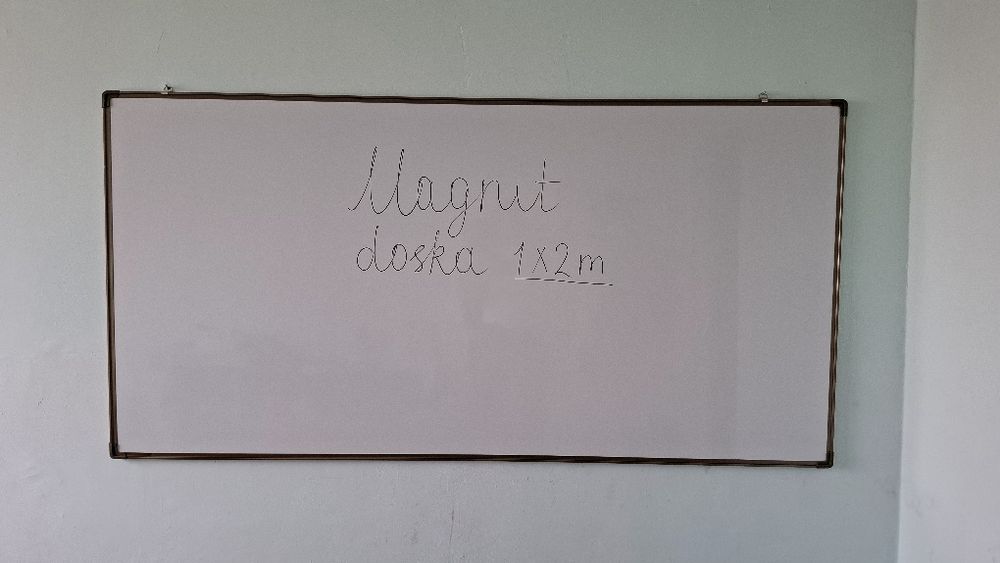 Magnit
doska 1x2m